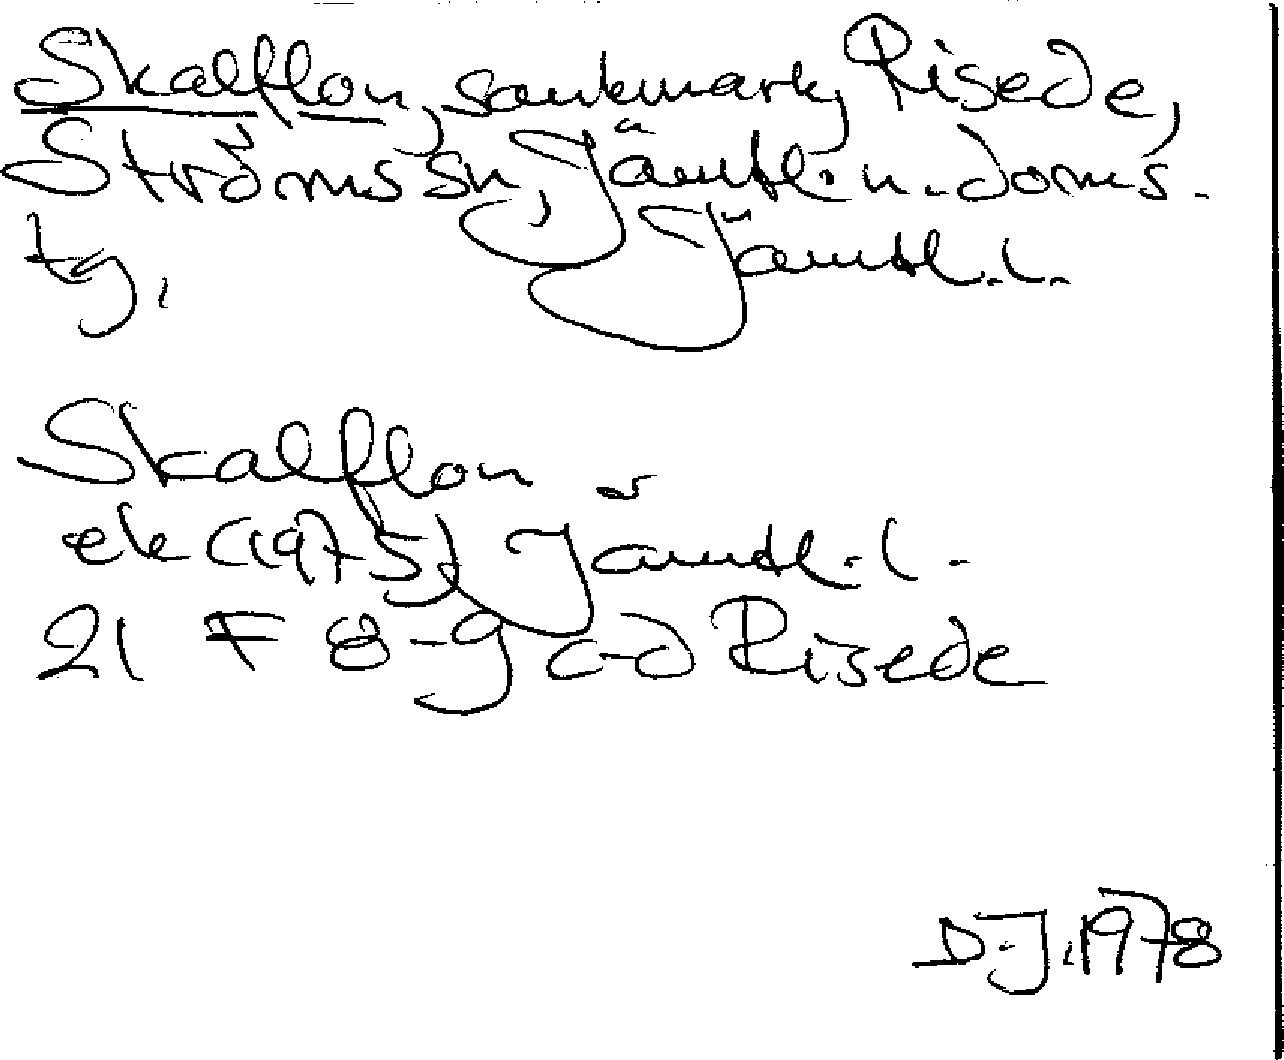 Skalflon, sankmark, Risede,
Ströms sn, Jämtl. n. doms.
tg, Jämtl. l.
Skalflon
ek (1975) Jämtl. l.
21 F 8-9 c-d Risede
D.J. 1978